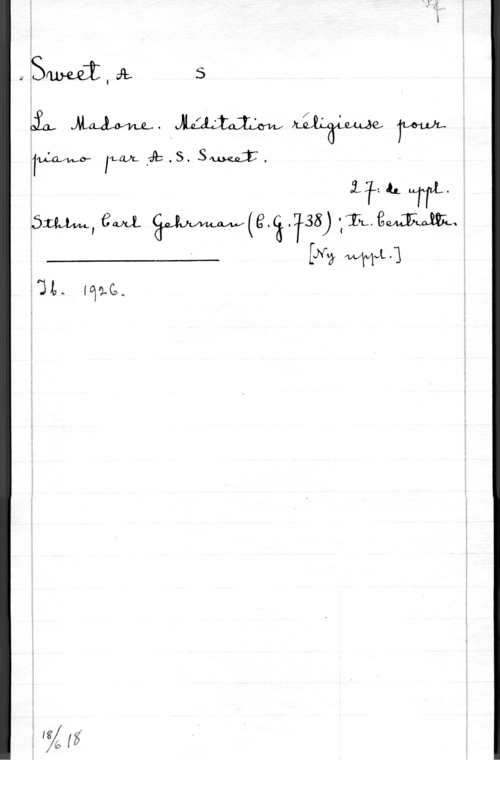 Sweet, A S
La Madone. Méditation réligieuse pour
piano par A. S. Sweet.
27:de uppl.
Sthlm, Carl Gehrman (C.G.738); tr. Centraltr.
[Ny uppl.]
Ib. 1926.
18/6 18